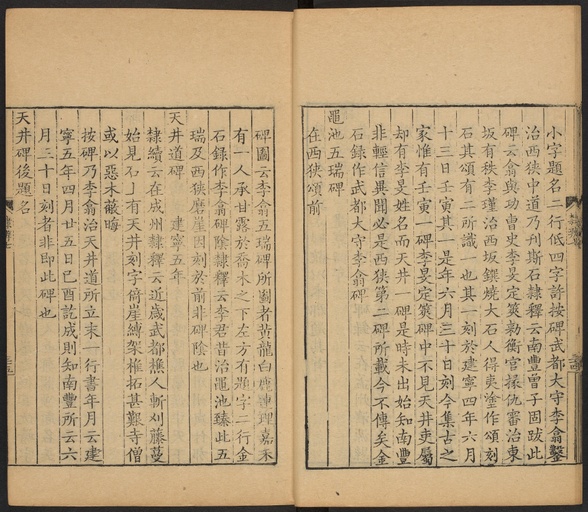 小字題名二行低四字許按碑武都大守李翕鑿
治西狹中道乃刋斯石隸釋云南豐曾子固跋此
碑云翕與功曹史李旻定筴勑衡官掾仇審治東
坂有秩李瑾治西坂鐉燒大石人得夷塗作頌刻
石其頌有二所識一也其一刻於建寧四年六月
十三日壬寅其一是年六月三十日刻今集古之
家惟有壬寅一碑李旻定筴碑中不見天井吏屬
却有李旻姓名而天井一碑是時未出始知南豐
非輕信異聞必是西狹第二碑所載今不傳矣金
石録作武都大守李翕碑
黽池五瑞碑
在西狹頌前
碑圖云李翕五瑞碑所圖者黄龍白鹿連理嘉禾
有一人承甘露於喬木之下左方有題字二行金
石録作李翕碑陰隸釋云李君昔治黽池臻此五
瑞及西狹磨崖因刻於前非碑陰也
天井道碑 建寧五年
隸續云在成州隸釋云近歲武都樵人斬刈藤蔓
始見石上有天井刻字倚崖縛架椎拓甚艱寺僧
或以惡木蔽晦
按碑乃李翕治天井道所立末一行書年月云建
寧五年四月廿五日己酉訖成則知南豐所云六
月三十日刻者非即此碑也
天井碑後題名